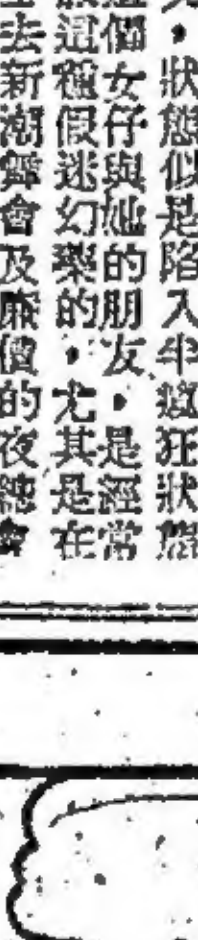 ，狀態似是陷入半瘋狂狀態
這個女仔與她的朋友，是經常
這種假迷幻藥的，尤其是在
去新潮舞會及廉價的夜總會